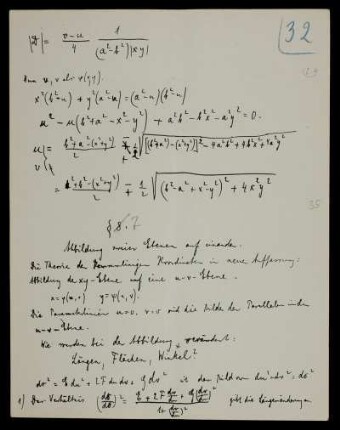 32
|D| = (v-u)/4 · 1/((a²-b²)|xy|)
u, v
x²(b²-u) + y²(a²-u) = (a²-u)(b²-u)
u² - u(b²+a²-x²-y²) + a²b² - b²x² - a²y² = 0.
u } = (b²+a²-(x²+y²))/2 ∓ 1/2 √([b²+a²-(x²+y²)]² - 4a²b² + 4b²x² + 4a²y²)
v }
= (a²+b²-(x²+y²))/2 ∓ 1/2 √((b²-a²+x²-y²)² + 4x²y²)
§ 7
Abbildung zweier Ebenen auf einander.
Die Theorie der krummlinigen Koordinaten in neuer Auffassung:
Abbildung der xy-Ebene auf eine u-v-Ebene.
x = φ(u,v) y = ψ(u,v)
Die Parameterlinien u=c, v=c sind die Bilder der Parallelen in der
u-v-Ebene.
Wie werden bei der Abbildung verändert:
Längen, Flächen, Winkel?
ds² = E du² + 2F du dv + G dv² ist das Bild von du² + dv² = dσ²
1) Das Verhältnis (ds/dσ)² = gibt die Längenänderung an